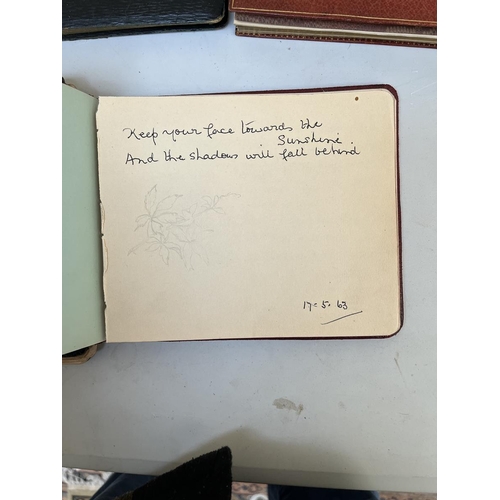 Keep your face towards the
Sunshine.
And the shadows will fall behind
17-5-63